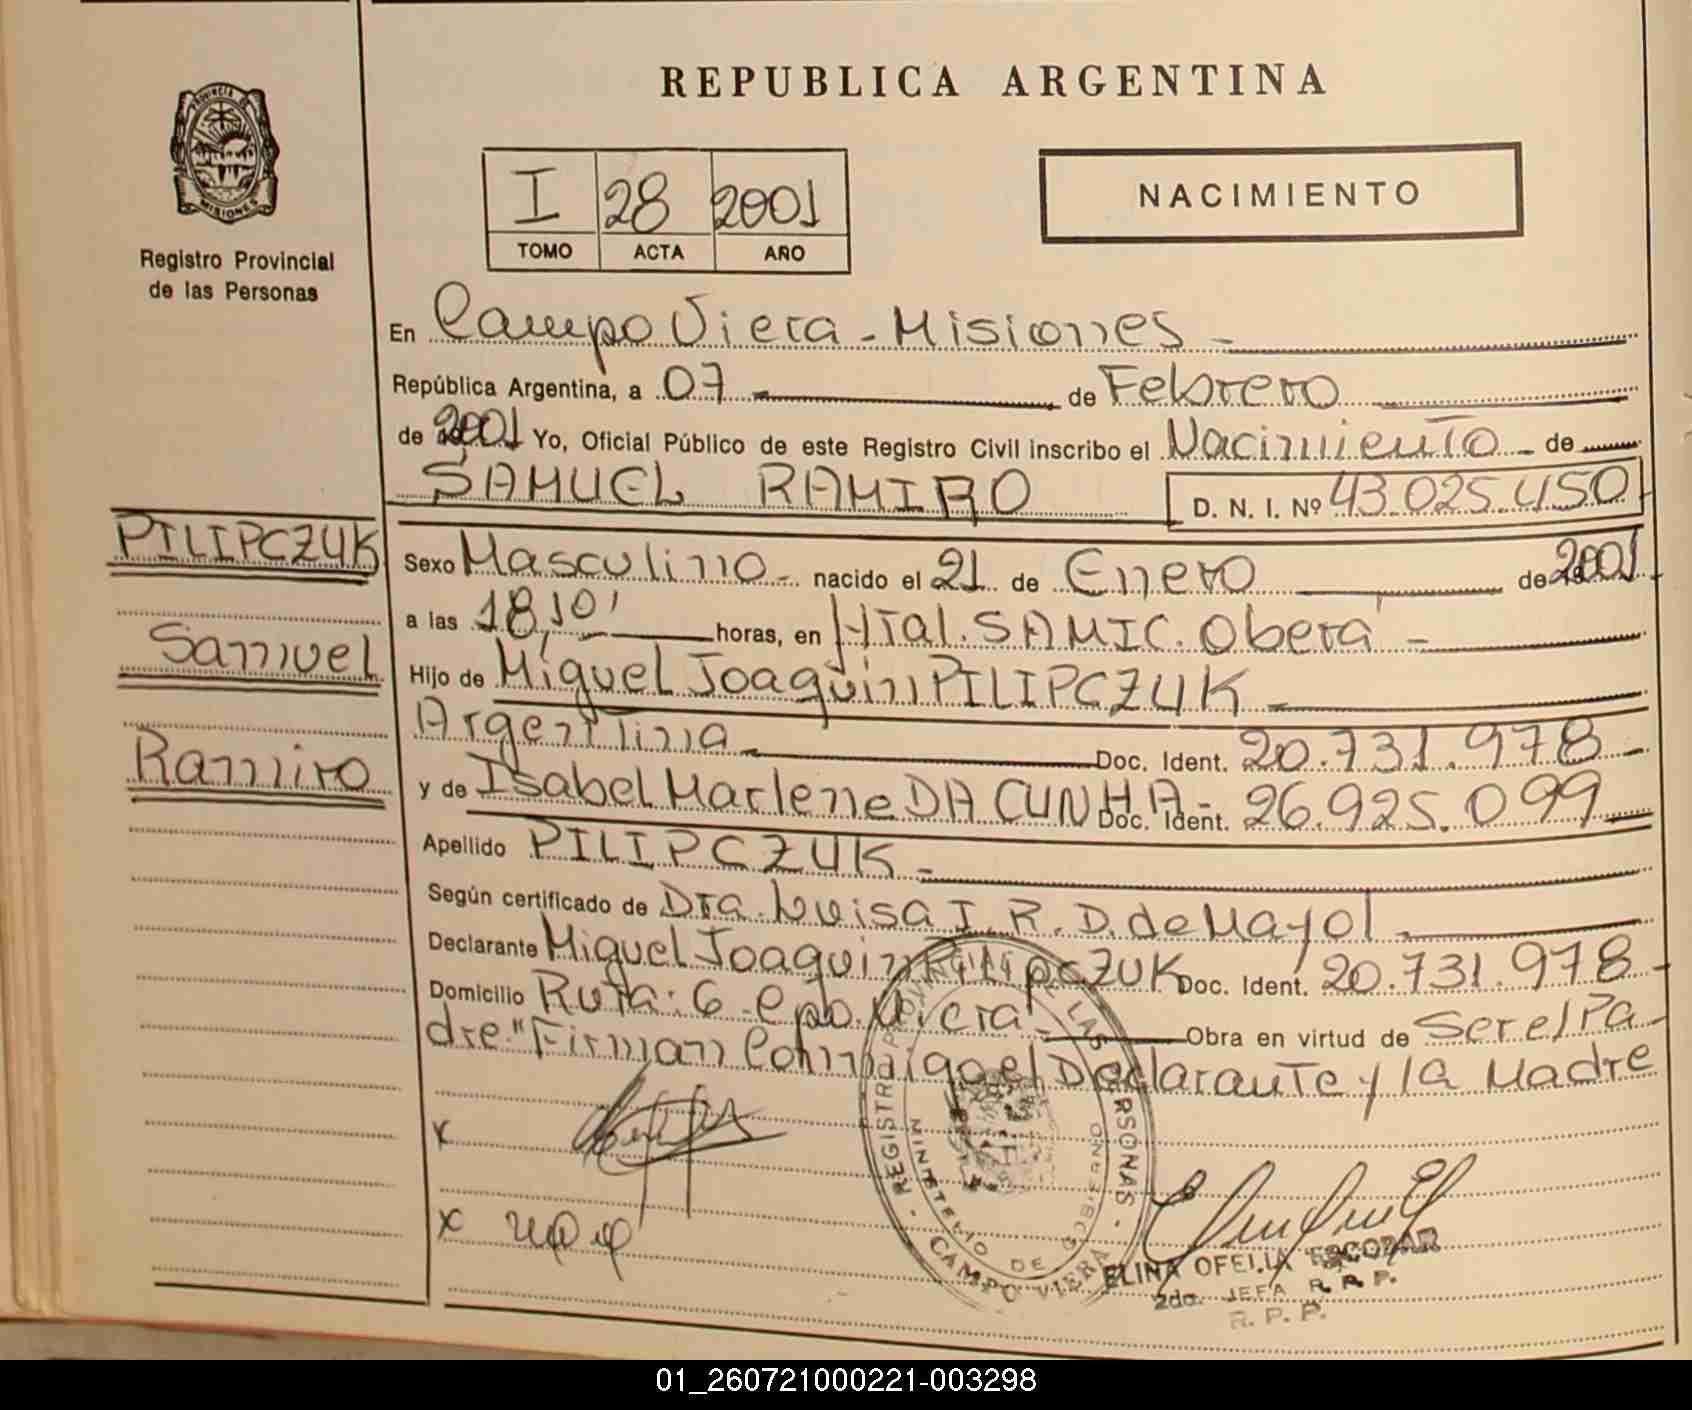 REPUBLICA ARGENTINA
PROVINCIA DE
MISIONES
Registro Provincial
de las Personas
I 28 2001
TOMO ACTA AÑO
NACIMIENTO
En Campo Viera - Misiones -
República Argentina, a 07 - de Febrero
de 2001 Yo, Oficial Público de este Registro Civil inscribo el Nacimiento - de
SAMUEL RAMIRO D. N. I. Nº 43.025.450
PILIPCZUK
Samuel
Ramiro
Sexo Masculino - nacido el 21 de Enero de 2001
a las 18,10' horas, en Htal. SAMIC. Oberá -
Hijo de Miguel Joaquin PILIPCZUK -
Argentina - Doc. Ident. 20.731.978 -
y de Isabel Marlene DA CUNHA - Doc. Ident. 26.925.099
Apellido PILIPCZUK -
Según certificado de Dra. Luisa I. R. D. de Mayol -
Declarante Miguel Joaquin PILIPCZUK Doc. Ident. 20.731.978 -
Domicilio Ruta: 6 - Cpo. Viera - Obra en virtud de Ser el Pa-
dre." Firman Conmigo el Declarante y la Madre
x
x
REGISTRO PROVINCIAL DE LAS PERSONAS
MINISTERIO DE GOBIERNO
CAMPO VIERA
ELINA OFELIA ESCOBAR
2do. JEFA R. P. P.
R. P. P.
01_260721000221-003298